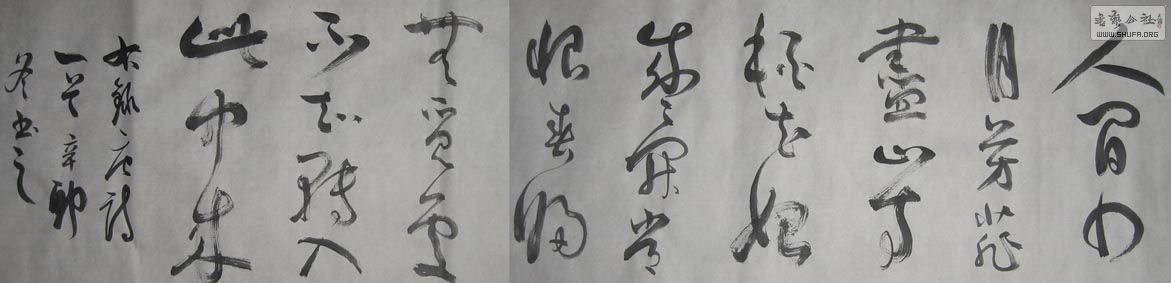 人間四
月芳菲
盡山寺
桃花始
盛開常
恨春歸
無覓處
不知轉入
此中來
右錄唐詩
一首辛卯
冬书之
書藝公社
WWW.SHUFA.ORG